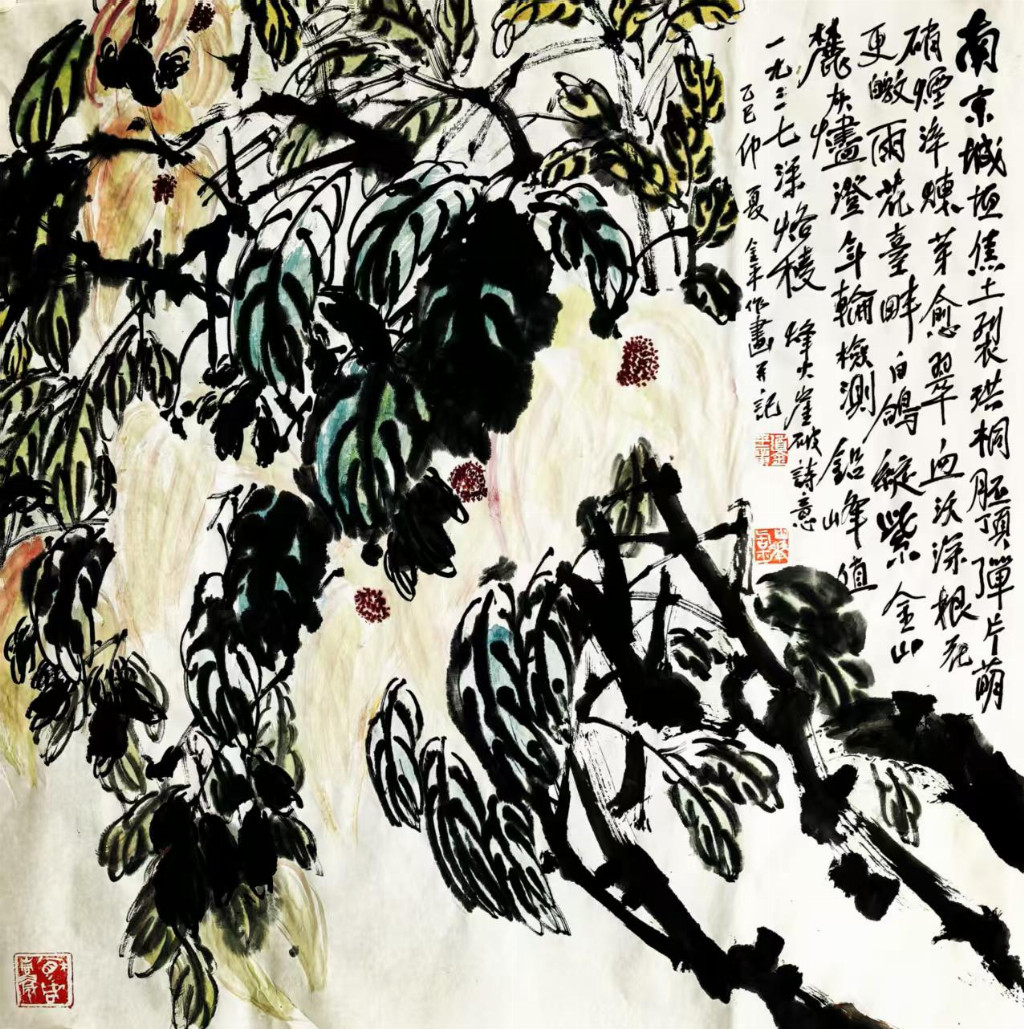 南京城垣焦土裂珙桐胚頂彈片萌
硝煙淬煉芽愈翠血沃深根花
更皦雨花臺畔白鴿綻紫金山
麓灰燼澄年輪檢測鋁峰值
一九三七深烙稜 烽火崖破詩意
乙巳仲夏金平作畫并記